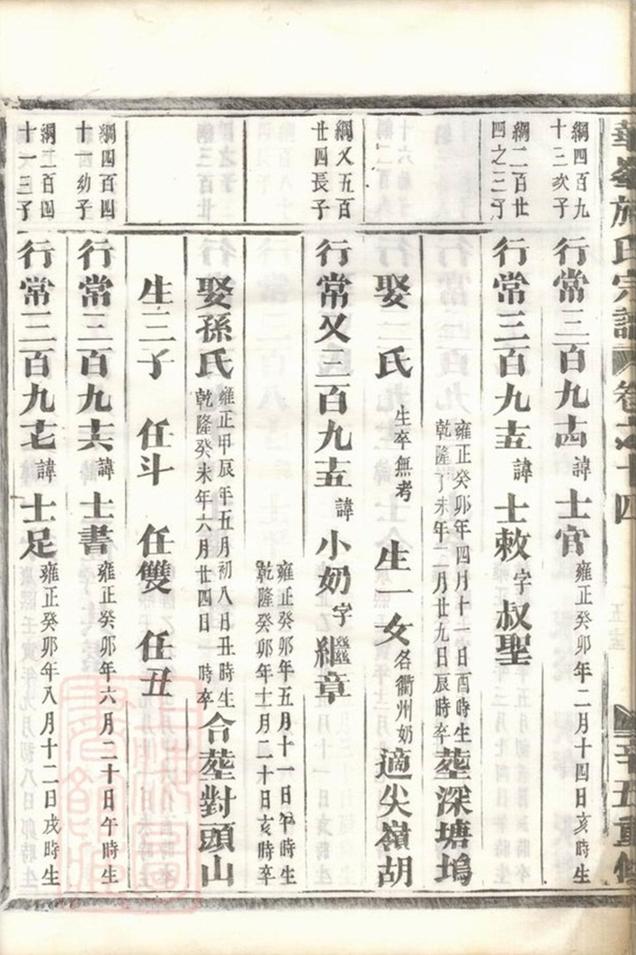 施氏宗譜 卷之十四 辛五重修
綱四百九
十三次子
行常三百九十四 諱 士官 雍正癸卯年二月十四日亥時生
綱二百廿
四之三子
行常三百九十五 諱 士敕 字 叔聖
雍正癸卯年四月十二日酉時生
乾隆丁未年二月廿九日辰時卒
塟深塘塢
娶 氏 生卒無考 生一女 名衢州奶 適尖嶺胡
綱又五百
廿四長子
行常又三百九十五 諱 小奶 字 繼章
雍正癸卯年五月十一日午時生
乾隆癸卯年十二月二十日亥時卒
娶孫氏
雍正甲辰年五月初八日丑時生
乾隆癸未年六月廿四日 時卒
合塟對頭山
生三子 任斗 任雙 任丑
綱四百四
十一幼子
行常三百九十六 諱 士書 雍正癸卯年六月二十日午時生
綱二百四
十一三子
行常三百九十七 諱 士足 雍正癸卯年八月十二日戌時生